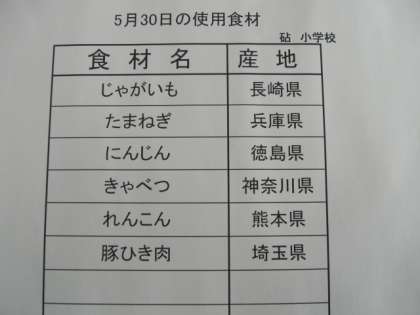 5月30日の使用食材
砧 小学校
食材名 産地
じゃがいも 長崎県
たまねぎ 兵庫県
にんじん 徳島県
きゃべつ 神奈川県
れんこん 熊本県
豚ひき肉 埼玉県